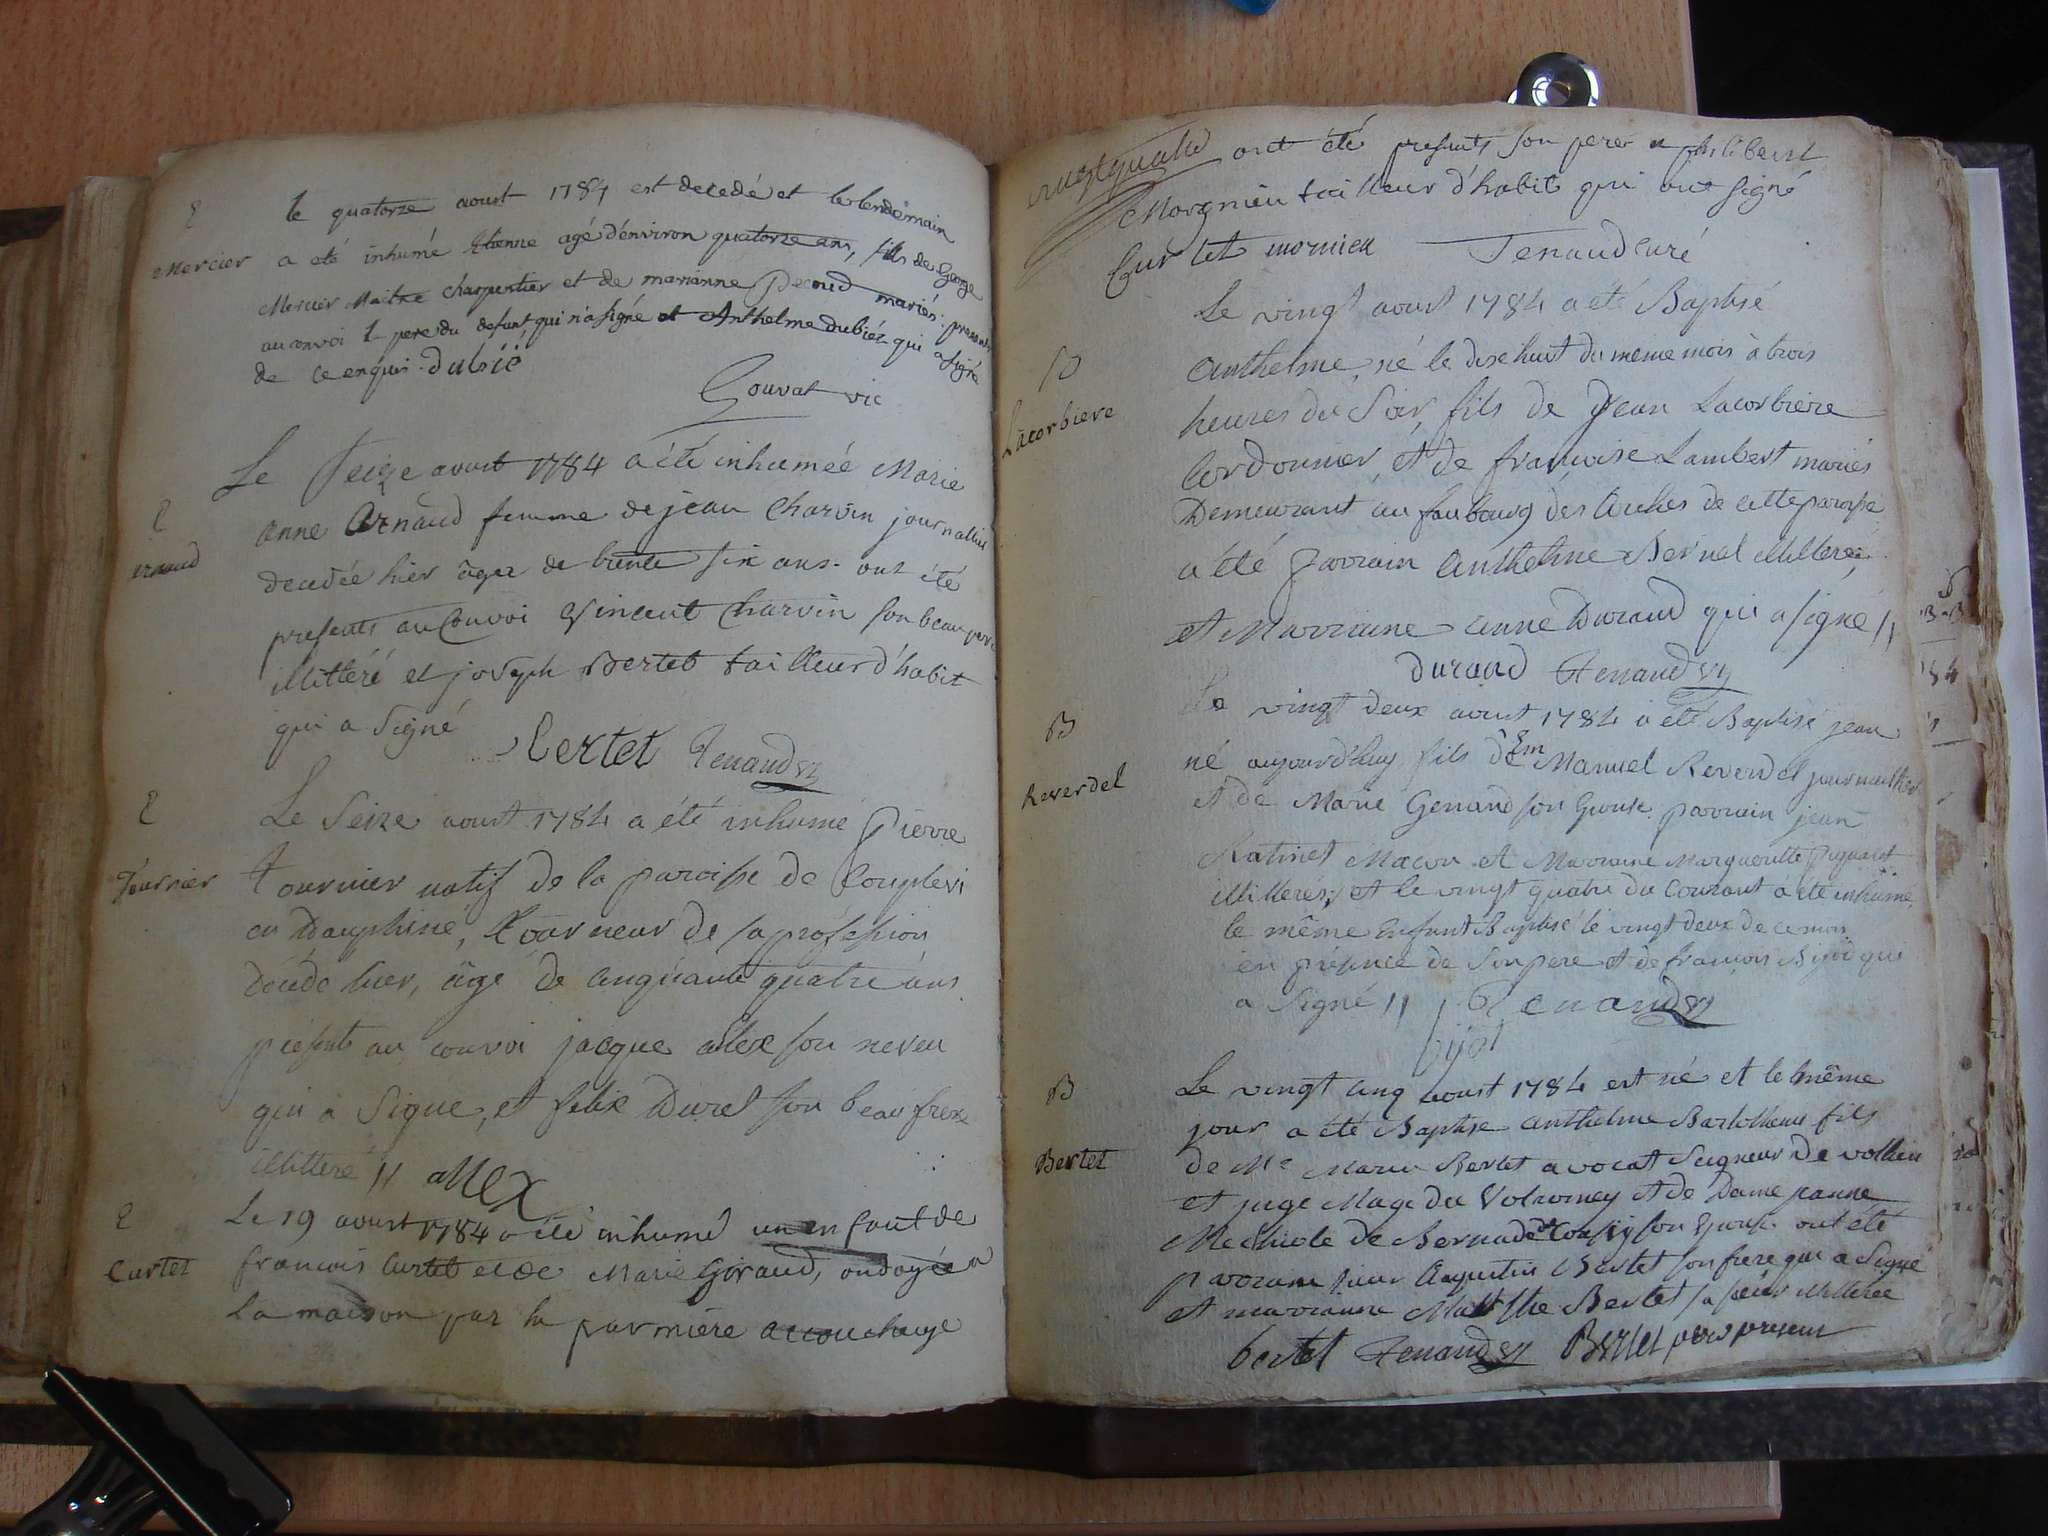 E
le quatorze aoust 1784 est decedé et le lendemain
Mercier
a eté inhumé Etienne agé d'énviron quatorze ans, fils de George
Mercier Maitre charpentier et de marianne Decoud mariés: presents
au convoi le pere du defunt qui n'a signé et Anthelme dubiéz qui a signé
de ce enquis. dubié
Gouvat vic
Le Seize aoust 1784 a été inhumée Marie
E
anne Arnaud femme de jean Charvin journallier
ernaud
decedée hier âgée de trente six ans. ont été
presents au Convoi Vincent Charvin son beau pere
illittéré et joseph Bertet tailleur d'habit
qui a Signé
Bertet Tenaud
E
Le Seize aoust 1784 a été inhumé Pierre
Tournier
tournier natif de la paroisse de Couplevi
en Dauphiné, tourneur de sa proféssion
décédé hier, âgé de cinquante quatre ans
présents au convoi jacque allex son neveu
qui a Signé, et felix Duret son beau frere
illitteré // allex
E
Le 19 aoust 1784 a été inhumé un enfant de
Curtet
francois Curtet et de Marie Giraud, ondoyé a
la maison par la parmiére accouchage
ont été presents son pere et philibert
Morgnieu tailleur d'habit qui ont signé
Curtet mornieu Tenaud curé
Le vingt aoust 1784 a été Baptisé
B
anthelme, né le dixe huit du meme mois à trois
Lacorbiere
heures du Soir, fils de Jean Lacorbiere
Cordonnier, et de francoise Lambert mariés
Demeurant au faubourg des Arches de cette paroisse
a été parrain anthelme Bernel illitteré,
et Marraine anne Durand qui a signé //
durand Tenaud
Le vingt deux aoust 1784 a été Baptisé jean
B
né aujourd'huy fils d'Em Manuel Reverdel journallier
Reverdel
et de Marie Genand son Epouse. parrain jean
Ratinet Macon et Marraine Margueritte
illitterés; et le vingt quatre du Courant a été inhumé,
le même Enfant Baptisé le vingt deux de ce mois
en présence de Son pere et de francois Bijod qui
a Signé // Tenaud
bijot
B
Le vingt cinq aoust 1784 est né et le même
jour a été Baptisé anthelme Barthelleme fils
Bertet
de Me Marin Bertet avocat Seigneur de vollien
et juge Mage du Valromey et de Dame jeanne
Mechiole de Bernade de Conssy son Epouse. ont été
parrain Sieur Augustin Bertet son frere qui a Signé
et marraine Marthe Bertet sa soeur illitterée
bertet Tenaud Bertet pere present